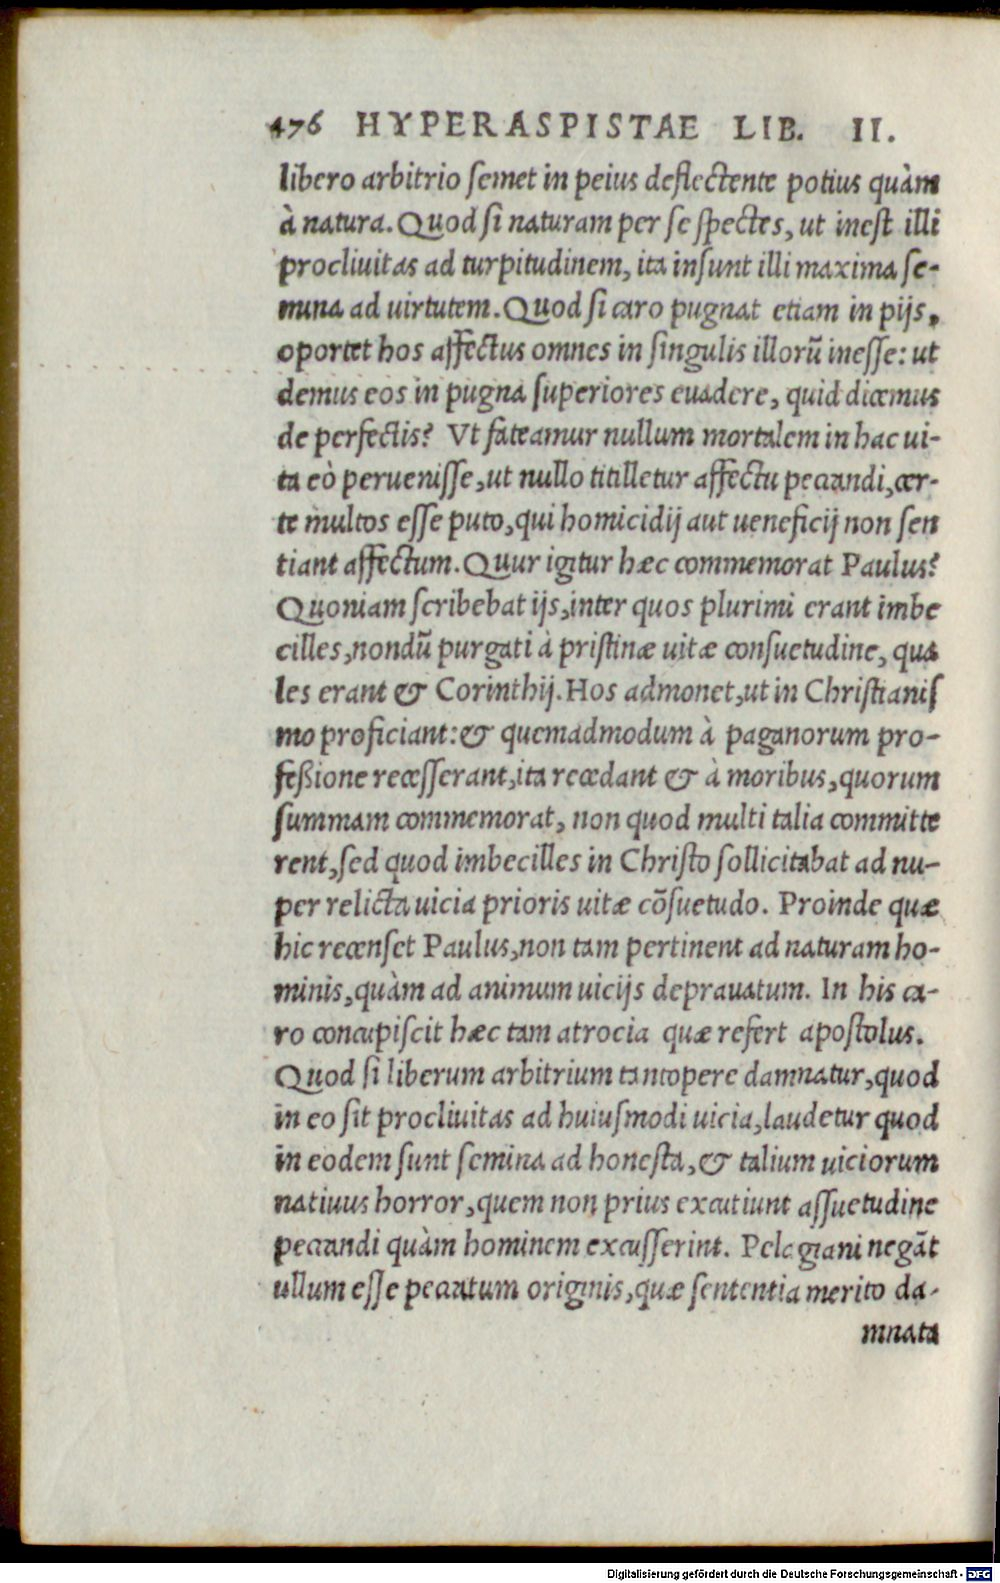 476 HYPERASPISTAE LIB. II.
libero arbitrio semet in peius deflectente potius quàm
à natura. Quod si naturam per se spectes, ut inest illi
procliuitas ad turpitudinem, ita insunt illi maxima se-
mina ad uirtutem. Quod si caro pugnat etiam in pijs,
oportet hos affectus omnes in singulis illorũ inesse: ut
demus eos in pugna superiores euadere, quid dicemus
de perfectis? Vt fateamur nullum mortalem in hac ui-
ta eò peruenisse, ut nullo titilletur affectu peccandi, cer-
te multos esse puto, qui homicidij aut ueneficij non sen
tiant affectum. Quur igitur hæc commemorat Paulus?
Quoniam scribebat ijs, inter quos plurimi erant imbe
cilles, nondũ purgati à pristinæ uitæ consuetudine, qua
les erant & Corinthij. Hos admonet, ut in Christianis
mo proficiant: & quemadmodum à paganorum pro-
feßione recesserant, ita recedant & à moribus, quorum
summam commemorat, non quod multi talia committe
rent, sed quod imbecilles in Christo sollicitabat ad nu-
per relicta uicia prioris uitæ cõsuetudo. Proinde quæ
hic recenset Paulus, non tam pertinent ad naturam ho-
minis, quàm ad animum uicijs deprauatum. In his ca-
ro concupiscit hæc tam atrocia quæ refert apostolus.
Quod si liberum arbitrium tantopere damnatur, quod
in eo sit procliuitas ad huiusmodi uicia, laudetur quod
in eodem sunt semina ad honesta, & talium uiciorum
natiuus horror, quem non prius excutiunt assuetudine
peccandi quàm hominem excusserint. Pelagiani negãt
ullum esse peccatum originis, quæ sententia merito da-
mnata
Digitalisierung gefördert durch die Deutsche Forschungsgemeinschaft - DFG